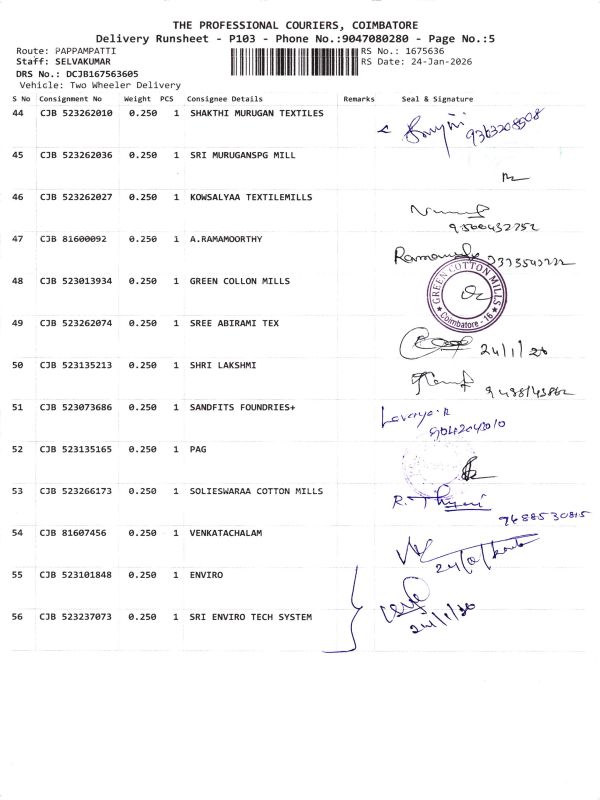 THE PROFESSIONAL COURIERS, COIMBATORE
Delivery Runsheet - P103 - Phone No.:9047080280 - Page No.:5
Route: PAPPAMPATTI
Staff: SELVAKUMAR
DRS No.: DCJB167563605
Vehicle: Two Wheeler Delivery
RS No.: 1675636
RS Date: 24-Jan-2026
S No Consignment No Weight PCS Consignee Details Remarks Seal & Signature
44 CJB 523262010 0.250 1 SHAKTHI MURUGAN TEXTILES
45 CJB 523262036 0.250 1 SRI MURUGANSPG MILL
46 CJB 523262027 0.250 1 KOWSALYAA TEXTILEMILLS
47 CJB 81600092 0.250 1 A.RAMAMOORTHY
48 CJB 523013934 0.250 1 GREEN COLLON MILLS
GREEN COTTON MILLS
Coimbatore - 16
49 CJB 523262074 0.250 1 SREE ABIRAMI TEX
24/1/26
50 CJB 523135213 0.250 1 SHRI LAKSHMI
51 CJB 523073686 0.250 1 SANDFITS FOUNDRIES+
9042043010
52 CJB 523135165 0.250 1 PAG
53 CJB 523266173 0.250 1 SOLIESWARAA COTTON MILLS
R. Thyeni
7688530815
54 CJB 81607456 0.250 1 VENKATACHALAM
55 CJB 523101848 0.250 1 ENVIRO
56 CJB 523237073 0.250 1 SRI ENVIRO TECH SYSTEM
24/1/26